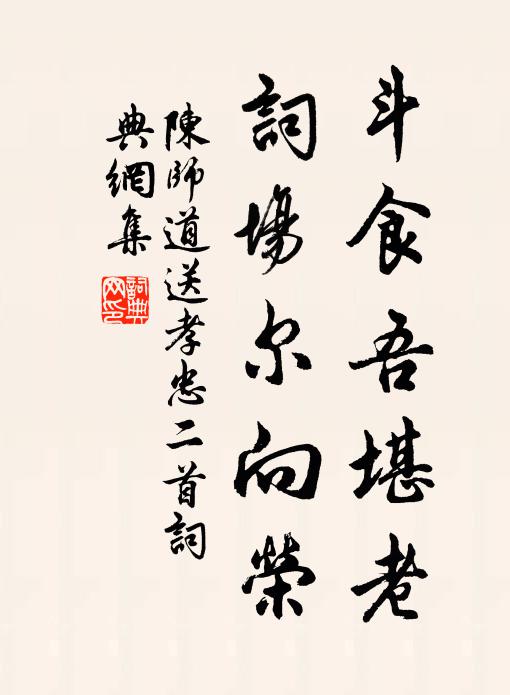 斗食吾堪老
詞場尔向榮
陳師道送孝忠二首詞
典網集
詞典網印